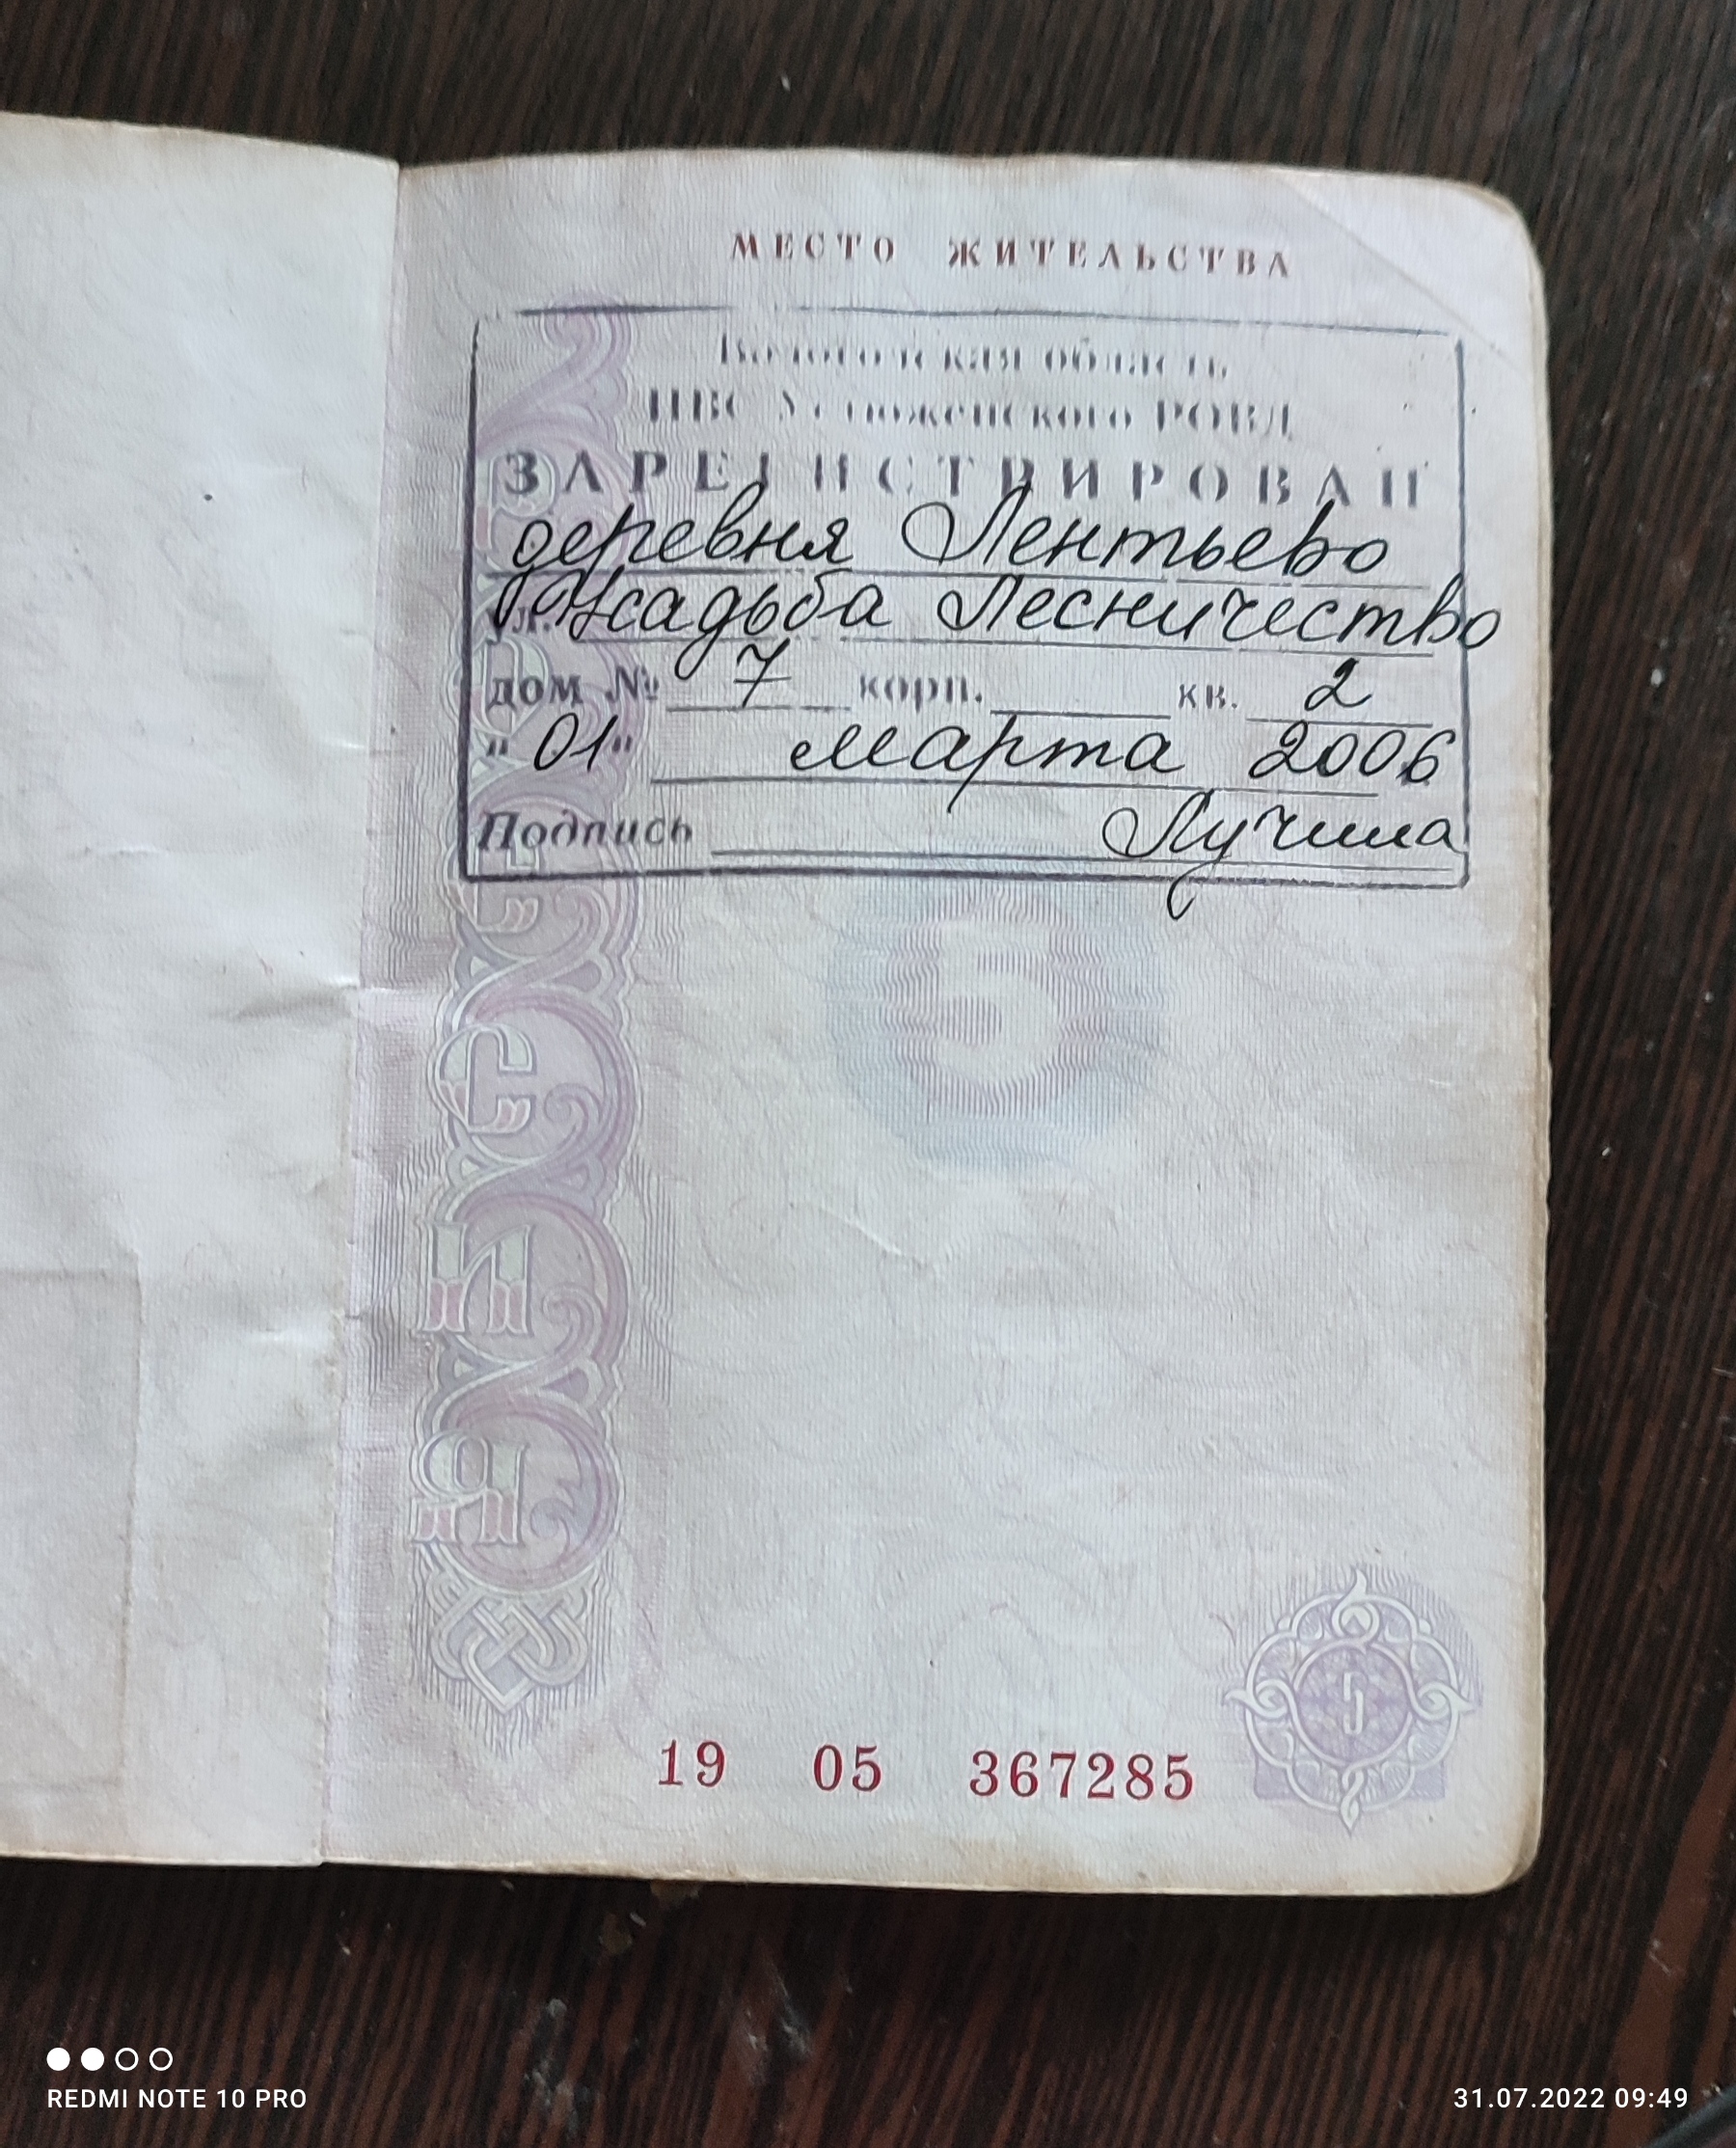 МЕСТО ЖИТЕЛЬСТВА
Вологодская область
ПВС Устюженского РОВД
ЗАРЕГИСТРИРОВАН
деревня Лентьево
ул. Усадьба Лесничество
дом № 7 корп. кв. 2
"01" марта 2006
Подпись Лучина
5
С
И
Я
5
19 05 367285
REDMI NOTE 10 PRO
31.07.2022 09:49